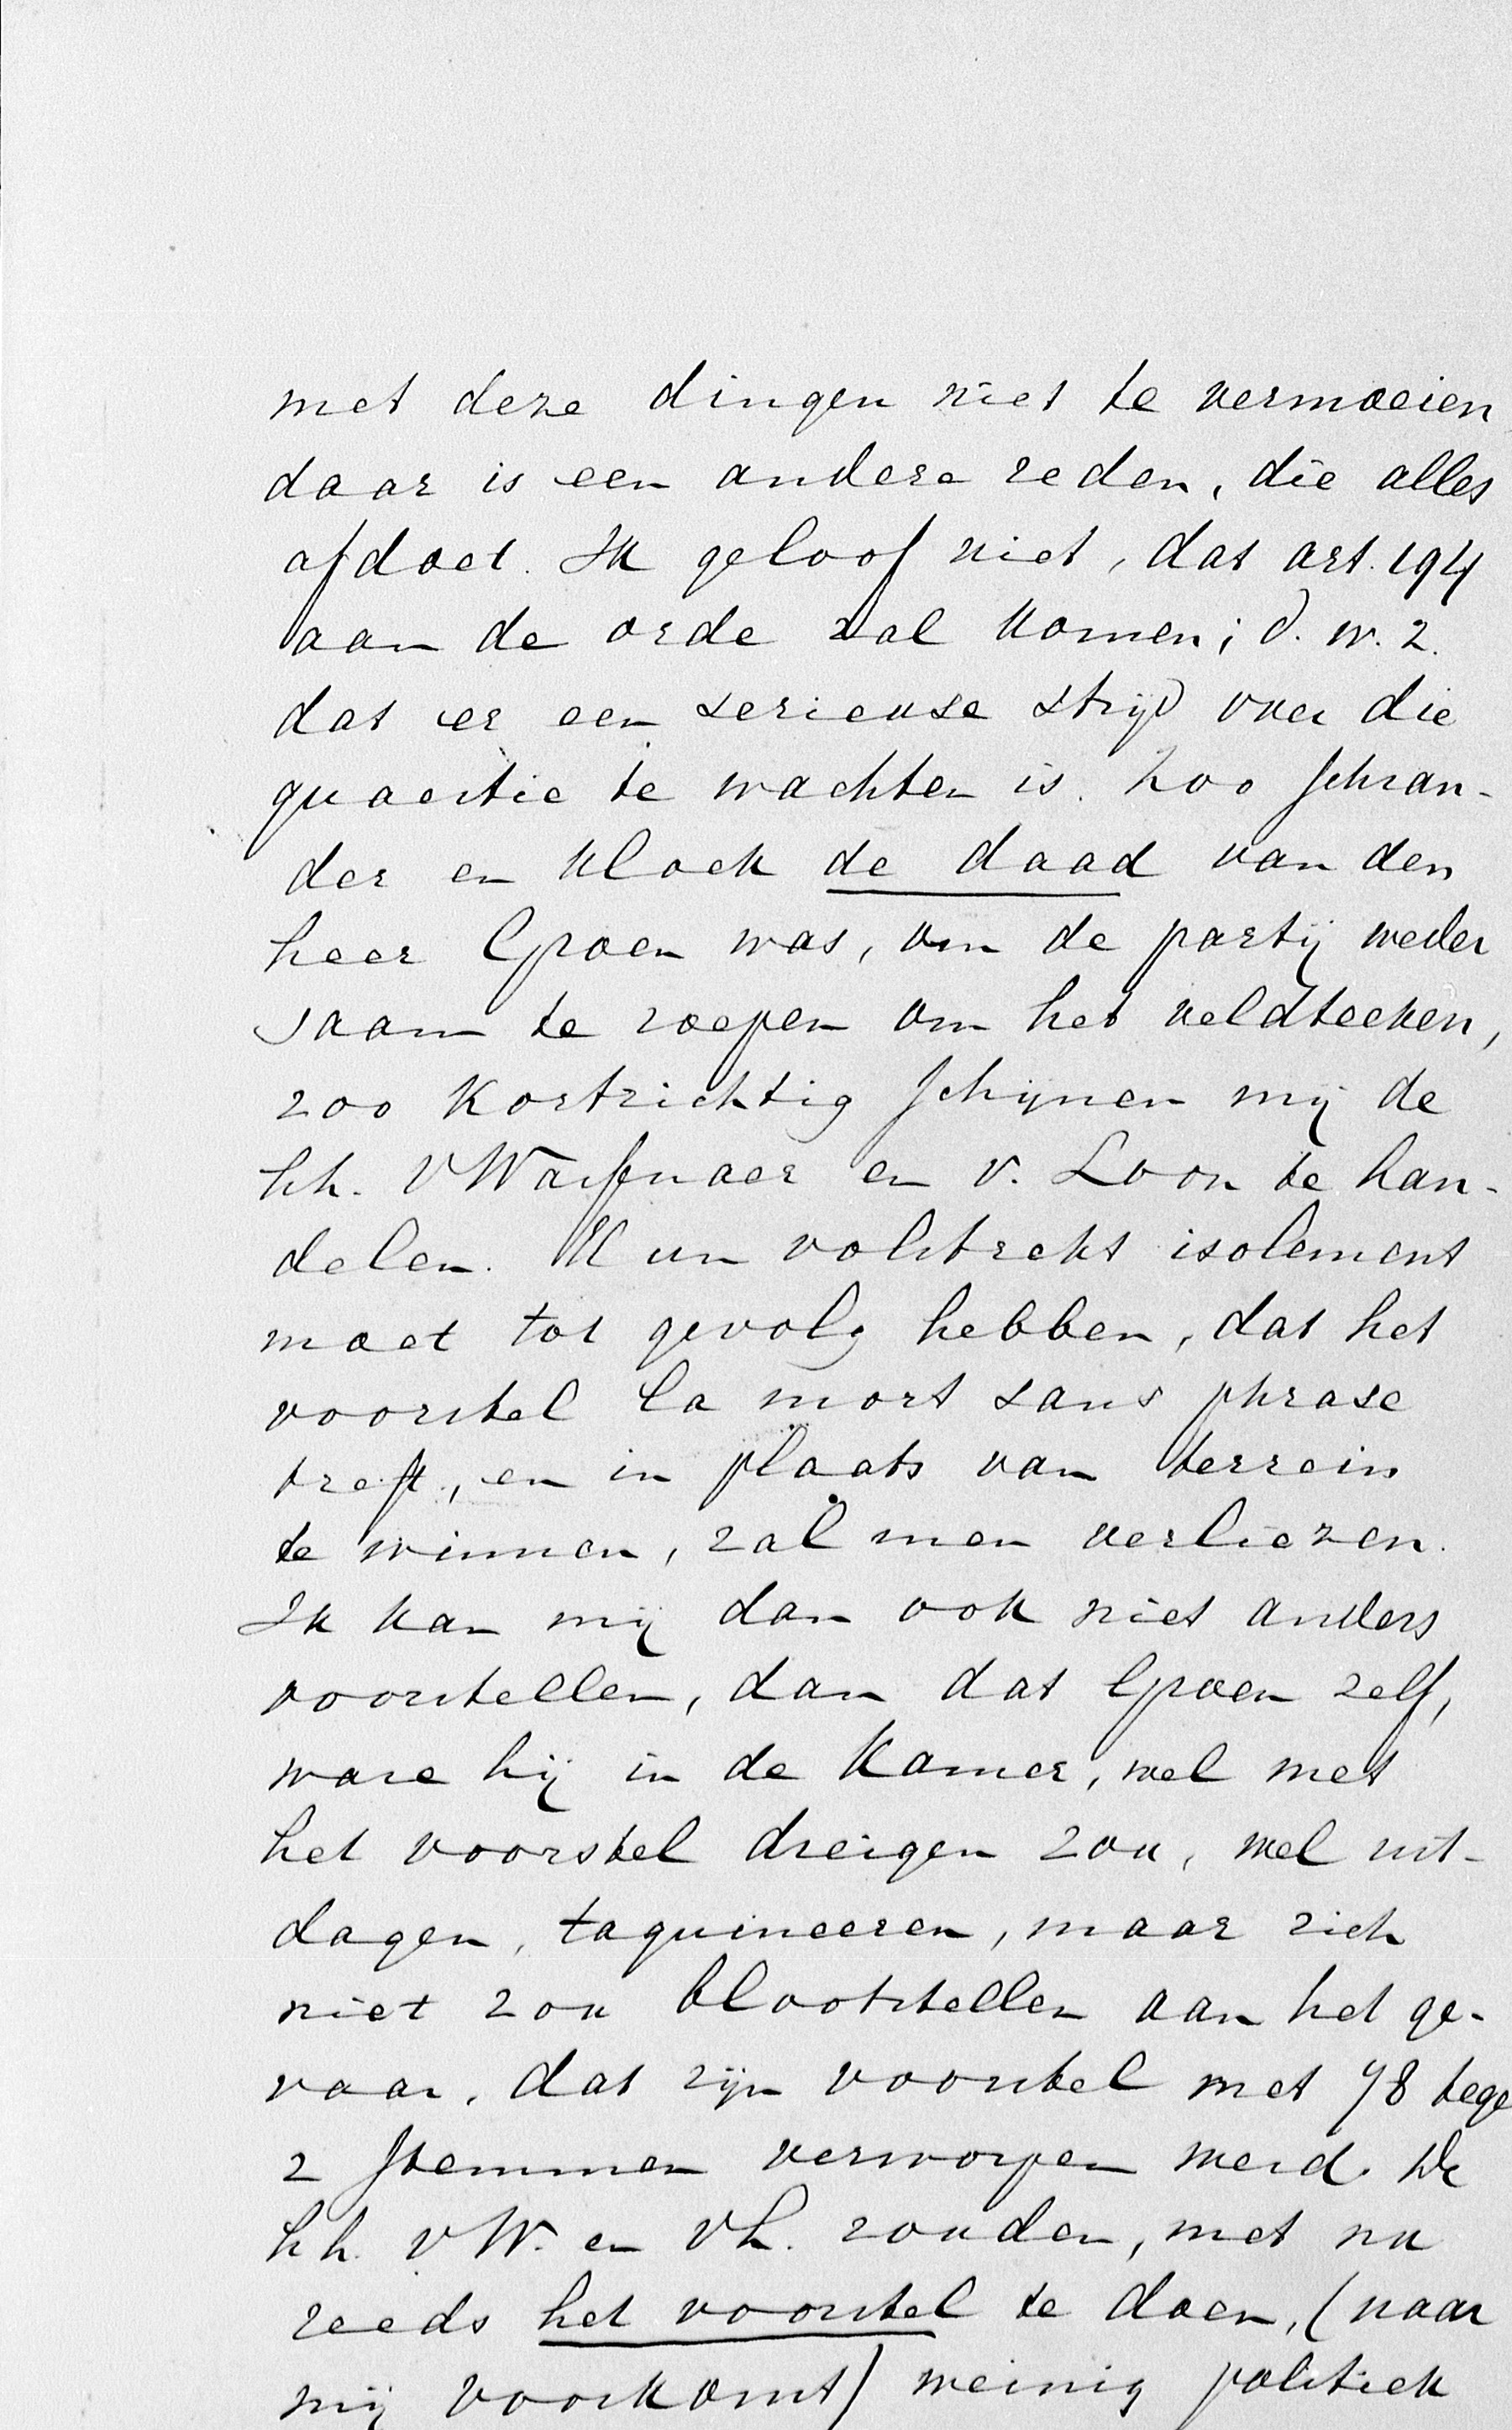 met deze dingen niet te vermoeien
daar is een andere reden, die alles
afdoet. Ik geloof niet, dat art. 194
aan de orde zal komen; d. w. z.
dat er een serieuse strijd over die
quaestie te wachten is. Zoo schran-
der en kloek de daad van den
heer Groen was, om de partij weder
saam te roepen om het veldteeken,
zoo kortzichtig schijnen mij de
hh. v Wassenaer en v. Loon te han-
delen. Hun volstrekt isolement
moet tot gevolg hebben, dat het
voorstel la mort sans phrase
treft, en in plaats van terrein
te winnen, zal men verliezen.
Ik kan mij dan ook niet anders
voorstellen, dan dat Groen zelf,
ware hij in de Kamer, wel met
het voorstel dreigen zou, wel uit-
dagen, taquineeren, maar zich
niet zou blootstellen aan het ge-
vaar, dat zijn voorstel met 78 tege
2 stemmen verworpen werd. De
hh. v W. en v L. zouden, met nu
reeds het voorstel te doen, (naar
mij voorkomt) weinig politiek